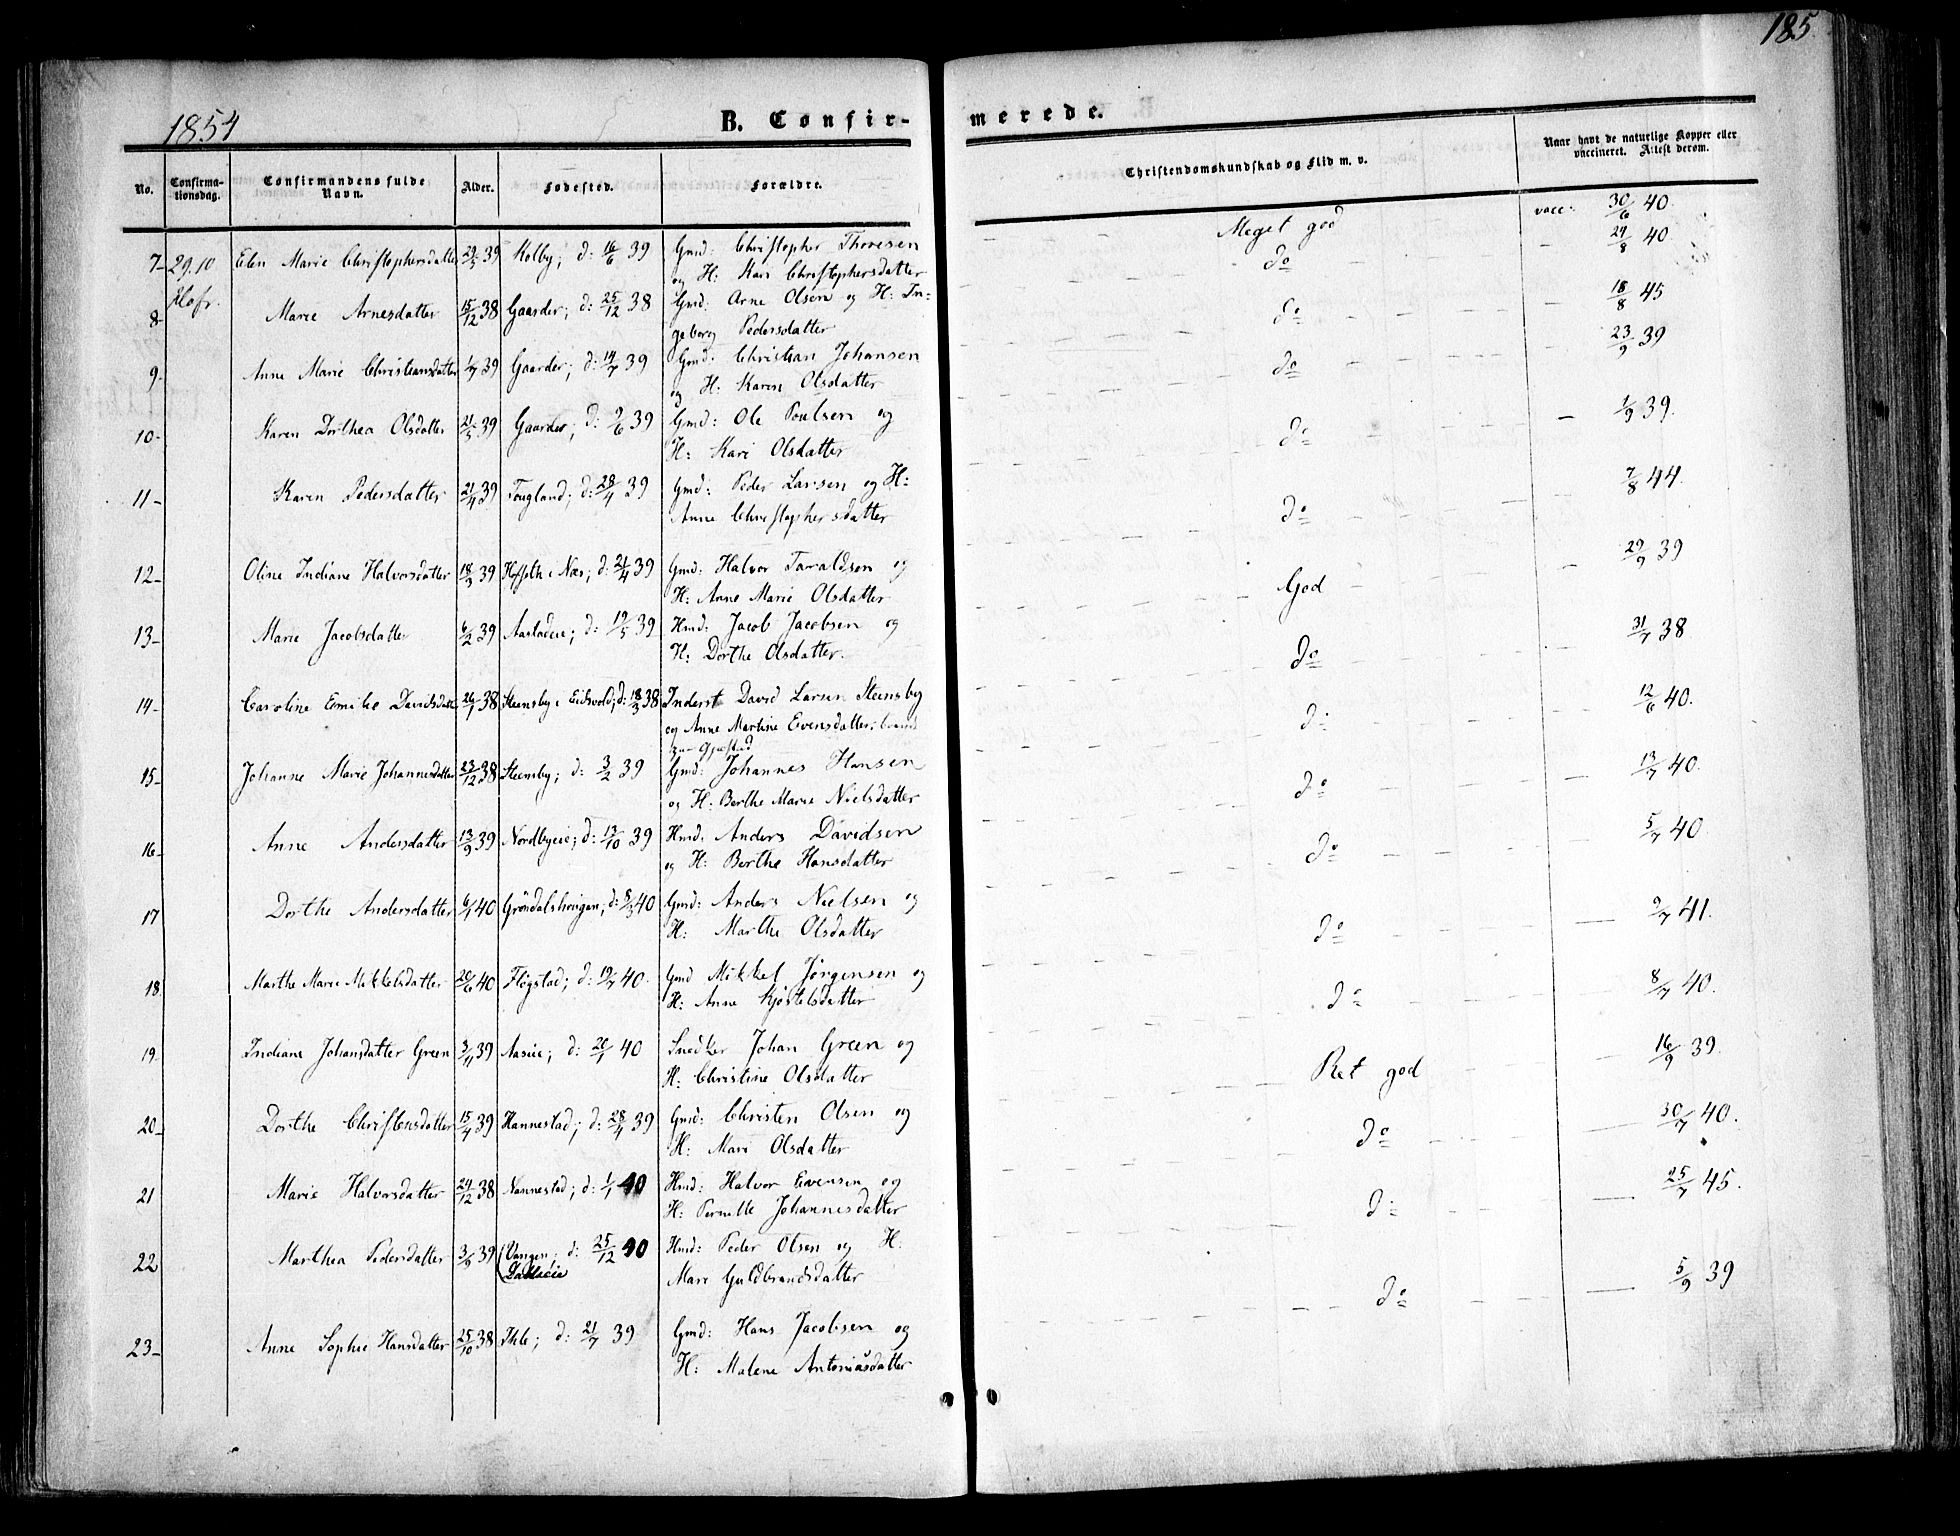 185
1854
B. Confir-
merede.
No.
Confirma-
tionsdag.
Confirmandens fulde
Navn.
Alder.
Fødested.
Forældre.
Christendomskundskab og Flid m. v.
Naar havt de naturlige Kopper eller
vaccineret. Attest derom.
7- 29.10 Elen Marie Christophersdatter 29/5 39 Kolby; d: 16/6 39 Gmd: Christopher Thoresen
og H: Kari Christophersdatter
Meget god vacc: 30/6 40.
8- Marie Arnesdatter 15/12 38 Gaarder; d: 25/12 38 Gmd: Arne Olsen og H: In-
geborg Pedersdatter
do 29/8 40
9. Anne Marie Christiansdatter 1/7 39 Gaarder; d: 14/7 39 Gmd: Christian Johansen
og H: Karen Olsdatter
do 18/8 45
10- Karen Dorthea Olsdatter 21/5 39 Gaarder; d: 9/6 39 Gmd: Ole Poulsen og
H: Kari Olsdatter
do 23/9 39
11- Karen Pedersdatter 21/4 39 Tougland; d: 28/4 39 Gmd: Peder Larsen og H:
Anne Christophersdatter
do 1/9 39.
12- Oline Indiane Halvorsdatter 18/3 39 i Næs; d: 21/4 39 Gmd: Halvor Taraldsen og
H: Anne Marie Olsdatter
do 7/8 44.
13- Marie Jacobsdatter 6/2 39 d: 19/5 39 Hmd: Jacob Jacobsen og
H: Dorthe Olsdatter.
God 29/9 39
14- Caroline Emilie Davidsdatter 26/1 38 Steensby i Eidsvold; d: 18/3 38 Inderst David Larsen Steensby
og Anne Martine Evensdatter,
Gjestad
do 31/7 38
15- Johanne Marie Johannesdatter 23/12 38 Steensby; d: 3/2 39 Gmd: Johannes Hansen
og H: Berthe Marie Nielsdatter
do 12/6 40.
16- Anne Andersdatter 13/9 39 Nordbyeie; d: 13/10 39 Hmd: Anders Davidsen
og H: Berthe Hansdatter
do 13/7 40.
17 Dorthe Andersdatter 6/1 40 Grøndalshougen; d: 8/3 40 Gmd: Anders Nielsen og
H: Marthe Olsdatter
do 5/7 40.
18 Marthe Marie Mikkelsdatter 20/6 40 Fløgstad; d: 19/7 40. Gmd Mikkel Jørgensen og
H: Anne Kjøstelsdatter
do 9/7 41.
19. Indiane Johansdatter Green 3/11 39 Aaseie; d: 26/1 40 Snedker Johan Green og
H: Christine Olsdatter
do 8/7 40.
20- Dorthe Christensdatter 15/4 39 Hannestad; d: 28/4 39 Gmd: Christen Olsen og
H: Mari Olsdatter
Ret god 16/9 39.
21 Marie Halvorsdatter 24/12 38 Nannestad; d: 1/1 40 Hmd: Halvor Evensen og
H: Pernelle Johannesdatter
do 30/7 40.
22 Marthea Pedersdatter 3/9 39 Vangen; d: 25/12 40 Hmd: Peder Olsen og H:
Mari Guldbrandsdatter
do 25/7 45.
23- Anne Sophie Hansdatter 25/10 38 Ihle; d: 21/7 39 Gmd: Hans Jacobsen og
H: Malene Antoniasdatter
do 5/9 39